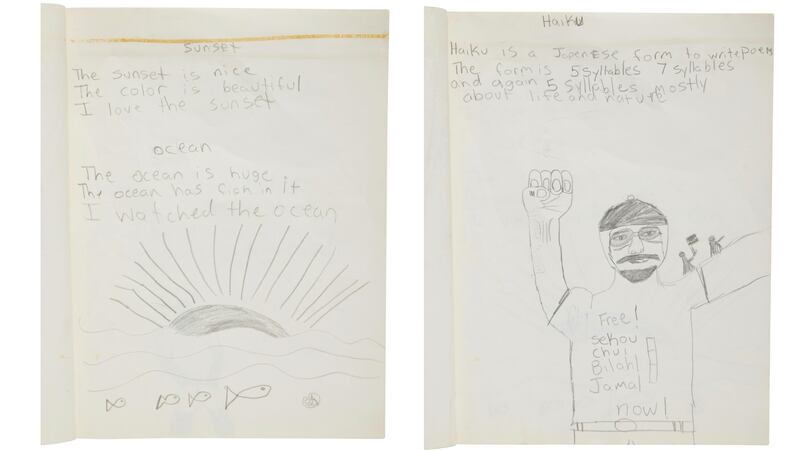 Sunset
The sunset is nice
The color is beautiful
I love the sunset
ocean
The ocean is huge
The ocean has Fish in it
I watched the ocean
Haiku
Haiku is a Japenese form to write poem
The form is 5 syllables 7 syllables
and again 5 syllables mostly
about life and nature
Free!
sekou
chui
Bilahl
Jamal
now!